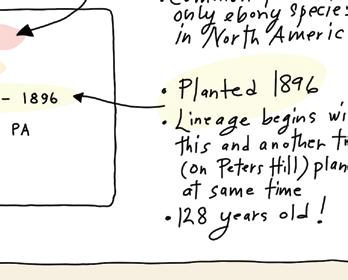 only ebony species
in North Americ
- 1896
PA
• Planted 1896
• Lineage begins wi
this and another t
(on Peters Hill) plan
at same time
• 128 years old!